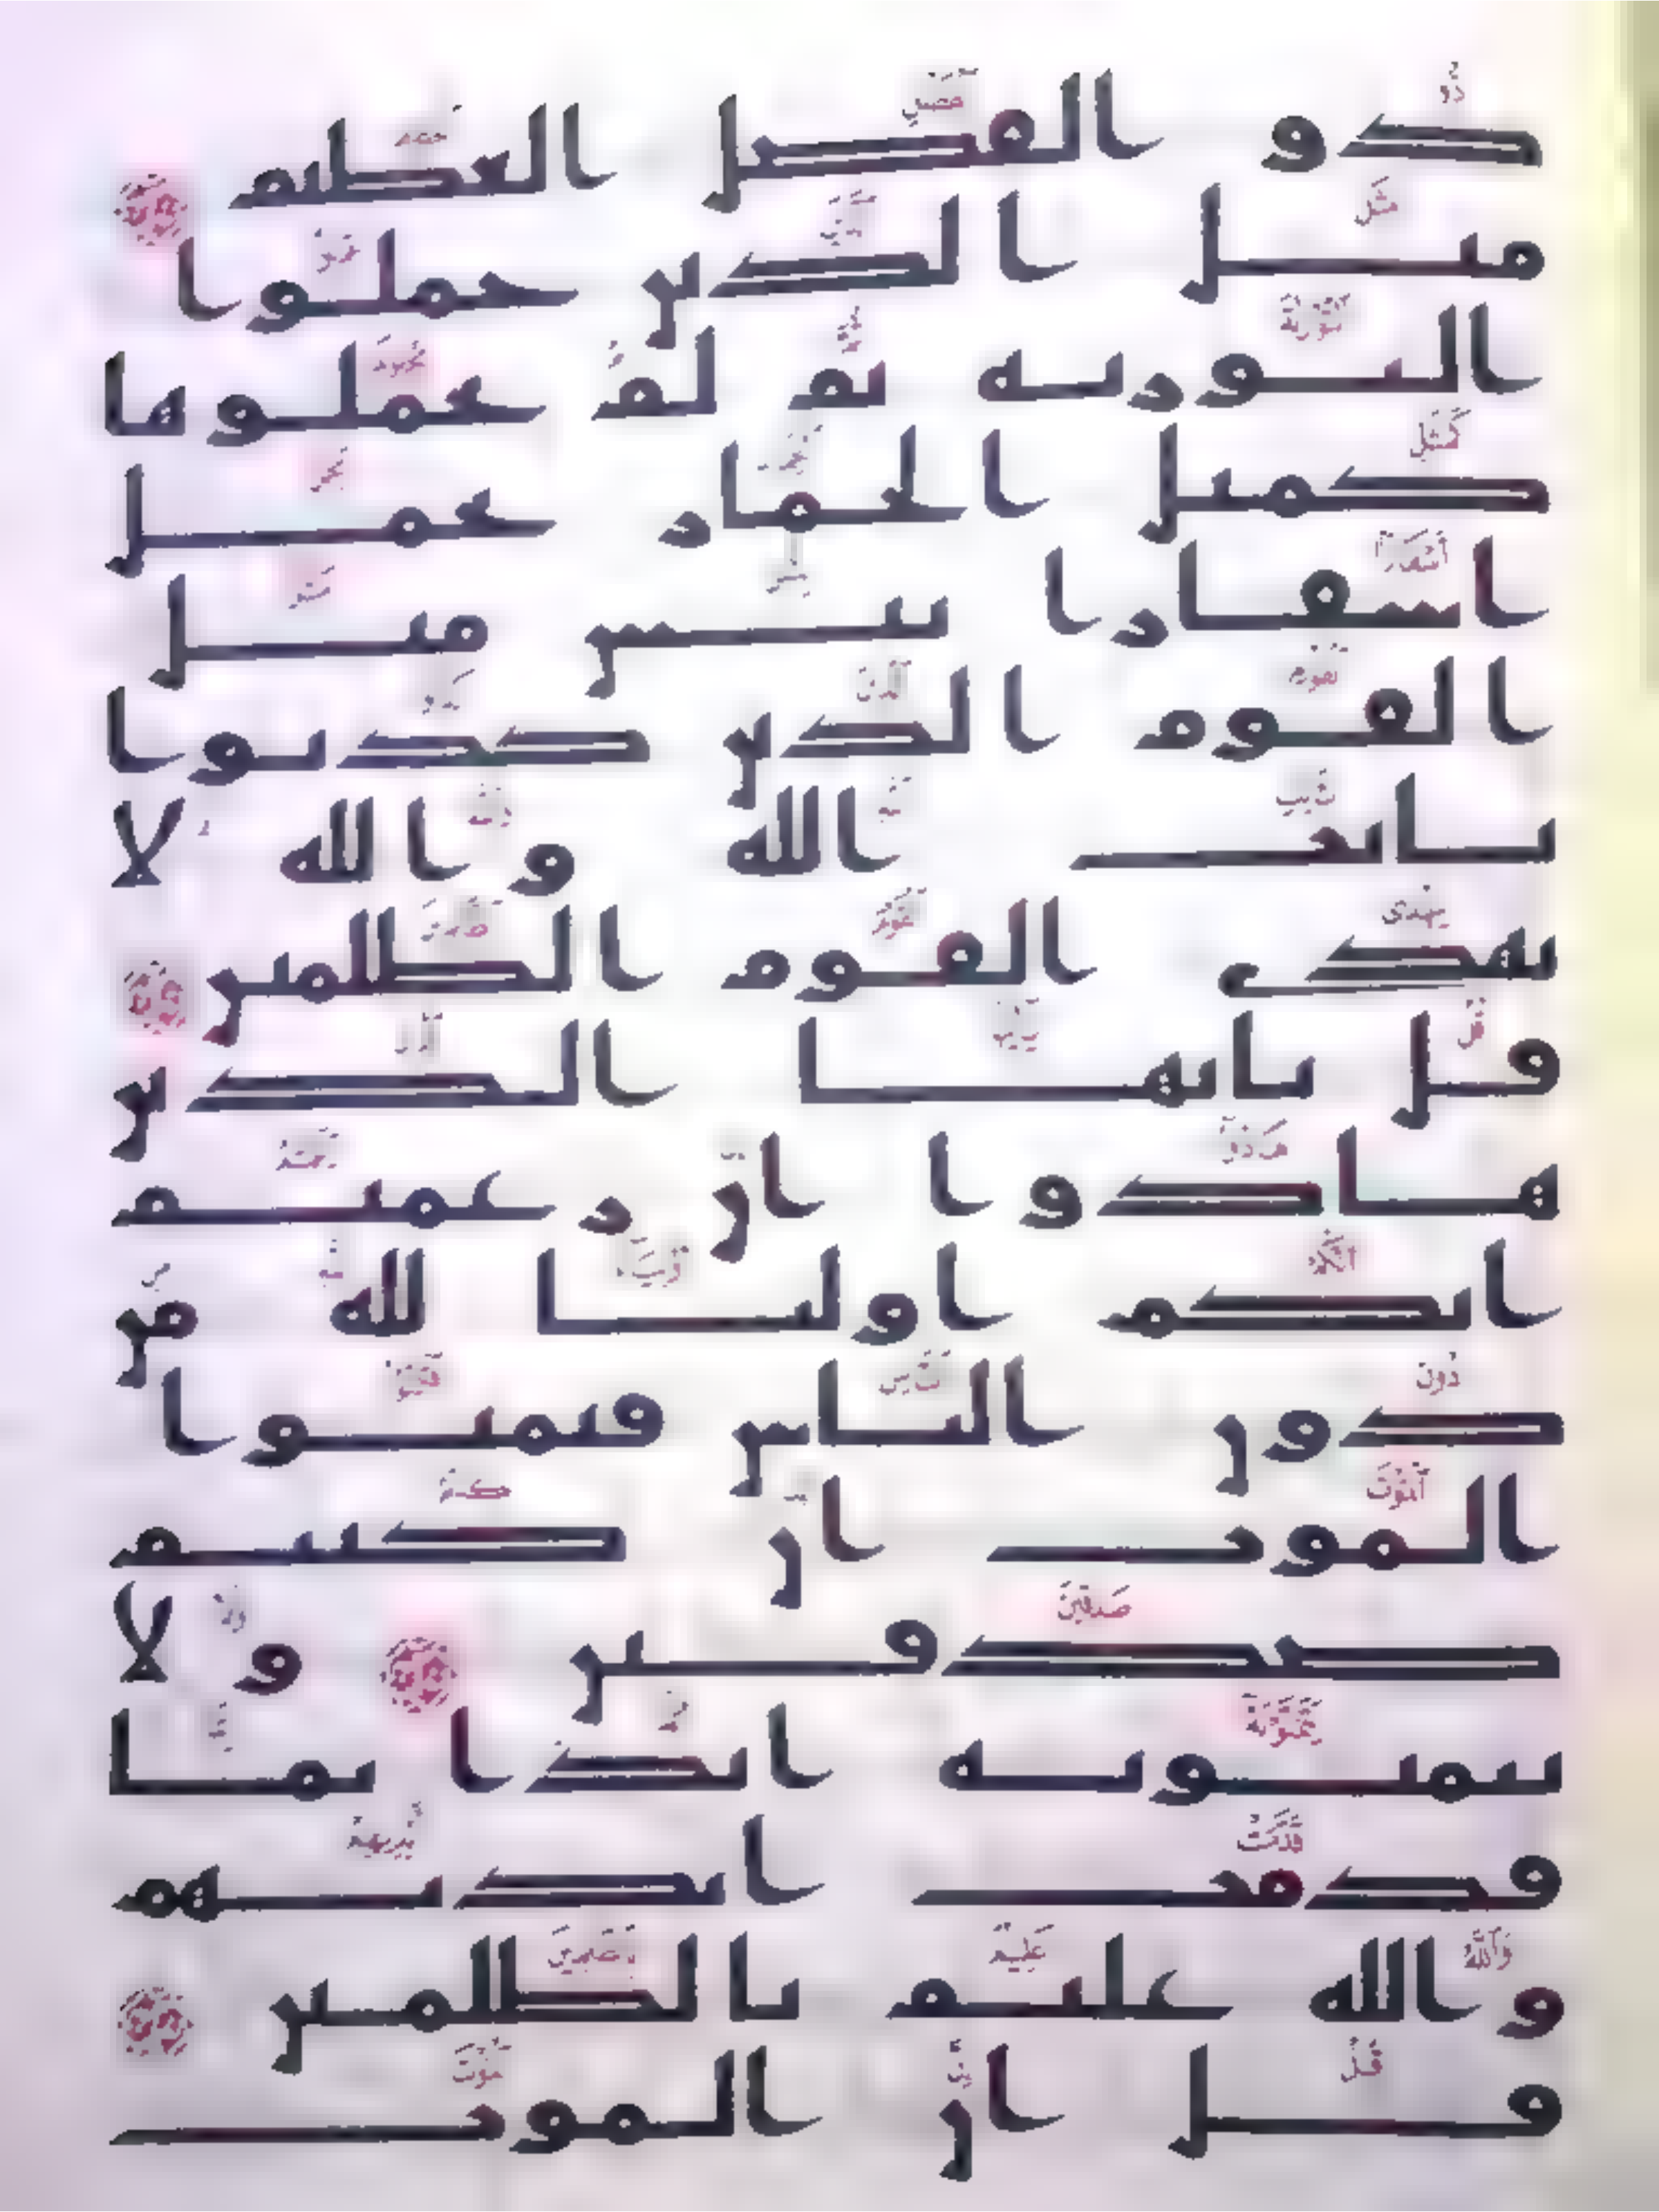 ذو الفضل العظيم
مثل الذين حملوا
التورية ثم لم يحملوها
كمثل الحمار يحمل
اسفارا بئس مثل
القوم الذين كذبوا
بايت الله والله لا
يهدى القوم الظلمين
قل يايها الذين
هادوا ان زعمتم
انكم اوليا لله من
دون الناس فتمنوا
الموت ان كنتم
صدقين ولا
يتمنونه ابدا بما
قدمت ايديهم
والله عليم بالظلمين
قل ان الموت